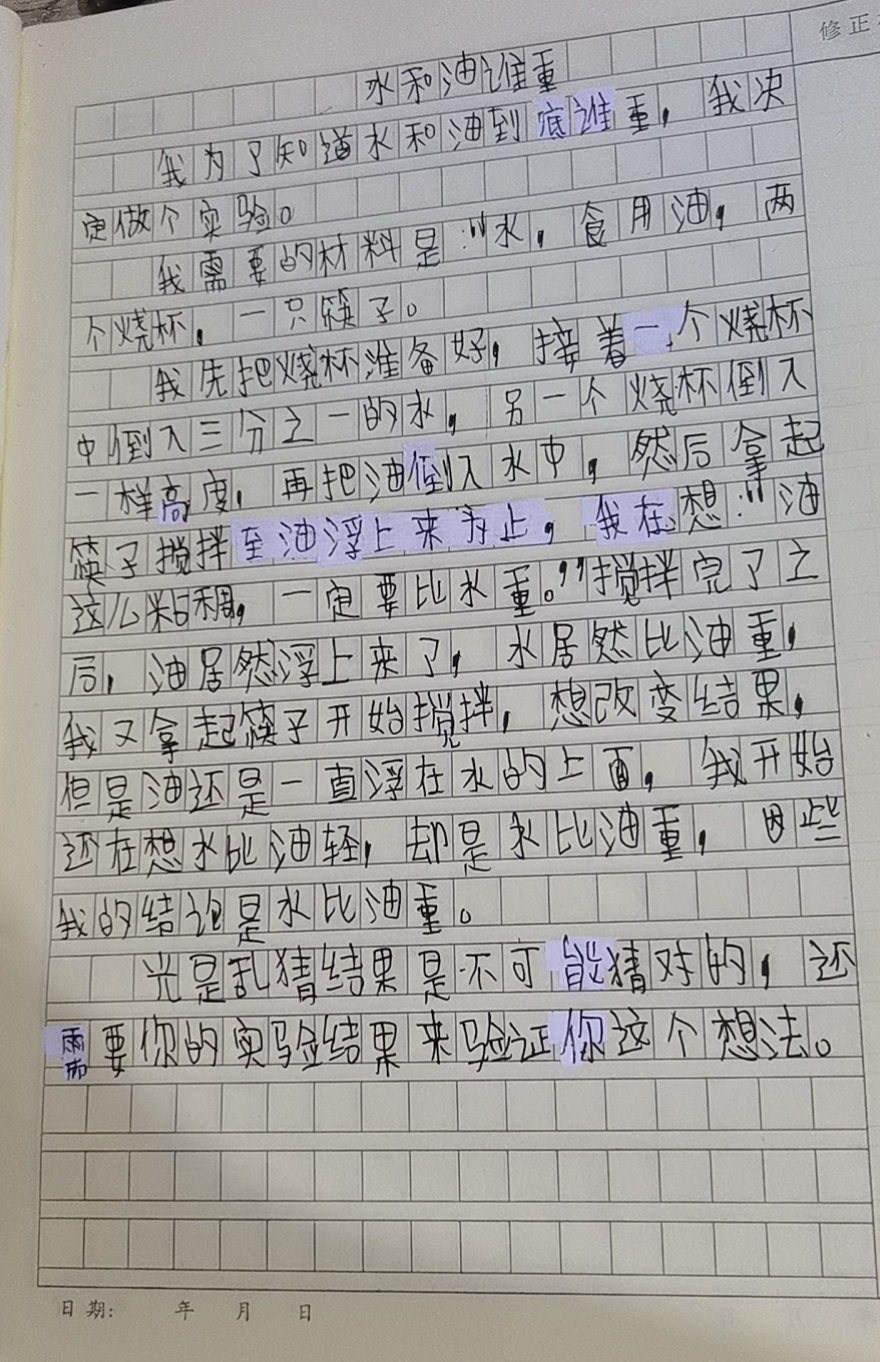 修正
水和油谁重
我为了知道水和油到底谁重，我决
定做个实验。
我需要的材料是:"水，食用油，两
个烧杯，一只筷子。
我先把烧杯准备好，接着一个烧杯
中倒入三分之一的水，另一个烧杯倒入
一样高度，再把油倒入水中，然后拿起
筷子搅拌至油浮上来为止，我在想:"油
这么粘稠，一定要比水重。"搅拌完了之
后，油居然浮上来了，水居然比油重，
我又拿起筷子开始搅拌，想改变结果，
但是油还是一直浮在水的上面，我开始
还在想水比油轻，却是水比油重，因些
我的结论是水比油重。
光是乱猜结果是不可能猜对的，还
需要你的实验结果来验证你这个想法。
日期: 年 月 日